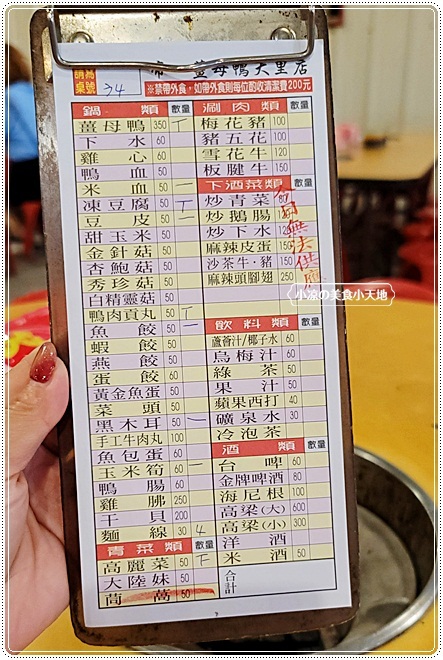 帝一薑母鴨大里店
請寫桌號 34
※禁帶外食，如帶外食則每位酌收清潔費200元
鍋類 數量
薑母鴨 350 丁
下水 60
雞心 60
鴨血 50
米血 50 一
凍豆腐 50 丁
豆皮 50 一
甜玉米 50
金針菇 50
杏鮑菇 50
秀珍菇 50
白精靈菇 50
鴨肉貢丸 50 丁
魚餃 50 一
蝦餃 50
燕餃 50
蛋餃 60
黃金魚蛋 50
菜頭 50
黑木耳 50 一
手工牛肉丸 100
魚包蛋 60
玉米筍 60 一
鴨腸 60
雞胇 250
干貝 200
麵線 30 4
青菜類 數量
高麗菜 50 下
大陸妹 50
茼蒿 50
涮肉類 數量
梅花豬 100
豬五花 100
雪花牛 120
板腱牛 150
下酒菜類 數量
炒青菜
炒鵝腸
炒下水
麻辣皮蛋
沙茶牛．豬
麻辣頭腳翅 250
今日無法供應
小涼の美食小天地
飲料類 數量
蘆薈汁/椰子水 60
烏梅汁 60
綠茶 50
果汁 50
蘋果西打 40
礦泉水 30
冷泡茶
酒類 數量
台啤 60
金牌啤酒 80
海尼根 100
高粱(大) 600
高粱(小) 300
洋酒
米酒 50
合計